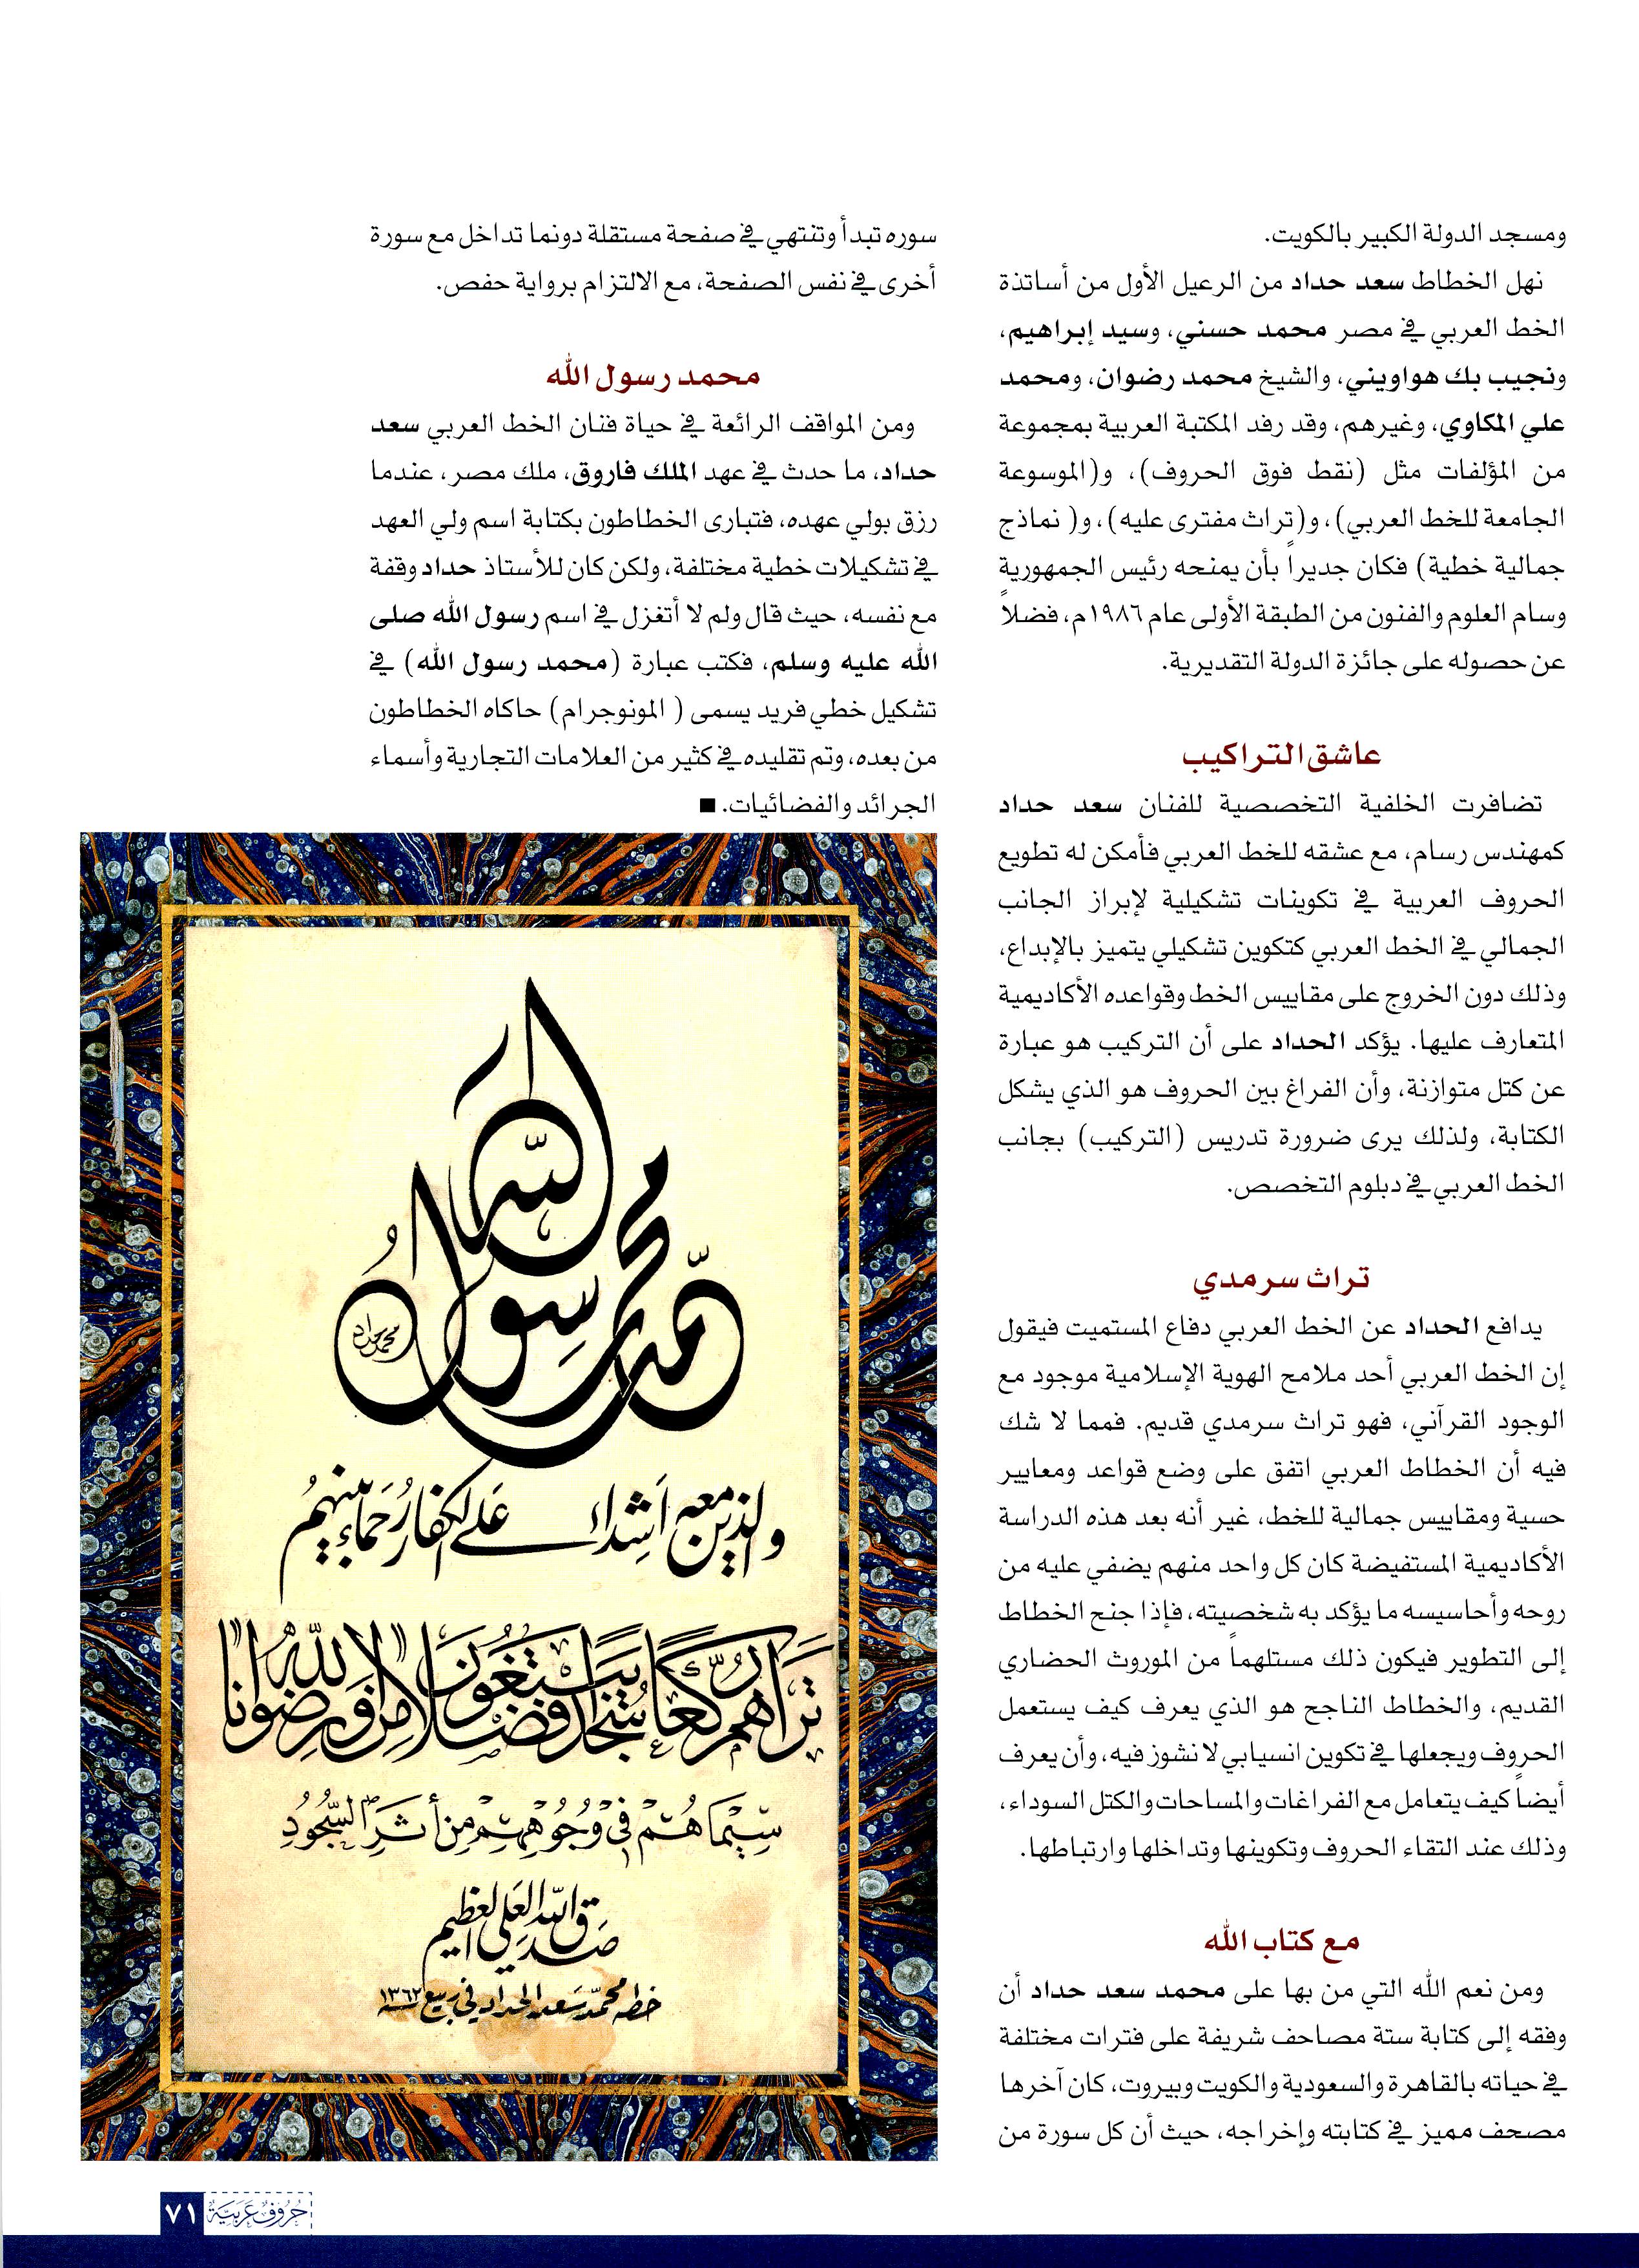 ومسجد الدولة الكبير بالكويت.
نهل الخطاط سعد حداد من الرعيل الأول من أساتذة
الخط العربي في مصر محمد حسني، وسيد إبراهيم،
ونجيب بك هواويني، والشيخ محمد رضوان، ومحمد
علي المكاوي، وغيرهم، وقد رفد المكتبة العربية بمجموعة
من المؤلفات مثل (نقط فوق الحروف)، و(الموسوعة
الجامعة للخط العربي)، و(تراث مفترى عليه)، و( نماذج
جمالية خطية) فكان جديراً بأن يمنحه رئيس الجمهورية
وسام العلوم والفنون من الطبقة الأولى عام ١٩٨٦م، فضلاً
عن حصوله على جائزة الدولة التقديرية.
عاشق التراكيب
تضافرت الخلفية التخصصية للفنان سعد حداد
كمهندس رسام، مع عشقه للخط العربي فأمكن له تطويع
الحروف العربية في تكوينات تشكيلية لإبراز الجانب
الجمالي في الخط العربي كتكوين تشكيلي يتميز بالإبداع،
وذلك دون الخروج على مقاييس الخط وقواعده الأكاديمية
المتعارف عليها. يؤكد الحداد على أن التركيب هو عبارة
عن كتل متوازنة، وأن الفراغ بين الحروف هو الذي يشكل
الكتابة، ولذلك يرى ضرورة تدريس (التركيب) بجانب
الخط العربي في دبلوم التخصص.
تراث سرمدي
يدافع الحداد عن الخط العربي دفاع المستميت فيقول
إن الخط العربي أحد ملامح الهوية الإسلامية موجود مع
الوجود القرآني، فهو تراث سرمدي قديم. فمما لا شك
فيه أن الخطاط العربي اتفق على وضع قواعد ومعايير
حسية ومقاييس جمالية للخط، غير أنه بعد هذه الدراسة
الأكاديمية المستفيضة كان كل واحد منهم يضفي عليه من
روحه وأحاسيسه ما يؤكد به شخصيته، فإذا جنح الخطاط
إلى التطوير فيكون ذلك مستلهماً من الموروث الحضاري
القديم، والخطاط الناجح هو الذي يعرف كيف يستعمل
الحروف ويجعلها في تكوين انسيابي لا نشوز فيه، وأن يعرف
أيضاً كيف يتعامل مع الفراغات والمساحات والكتل السوداء،
وذلك عند التقاء الحروف وتكوينها وتداخلها وارتباطها.
مع كتاب الله
ومن نعم الله التي من بها على محمد سعد حداد أن
وفقه إلى كتابة ستة مصاحف شريفة على فترات مختلفة
في حياته بالقاهرة والسعودية والكويت وبيروت، كان آخرها
مصحف مميز في كتابته وإخراجه، حيث أن كل سورة من
سوره تبدأ وتنتهي في صفحة مستقلة دونما تداخل مع سورة
أخرى في نفس الصفحة، مع الالتزام برواية حفص.
محمد رسول الله
ومن المواقف الرائعة في حياة فنان الخط العربي سعد
حداد، ما حدث في عهد الملك فاروق، ملك مصر، عندما
رزق بولي عهده، فتبارى الخطاطون بكتابة اسم ولي العهد
في تشكيلات خطية مختلفة، ولكن كان للأستاذ حداد وقفة
مع نفسه، حيث قال ولم لا أتغزل في اسم رسول الله صلى
الله عليه وسلم، فكتب عبارة (محمد رسول الله) في
تشكيل خطي فريد يسمى ( المونوجرام) حاكاه الخطاطون
من بعده، وتم تقليده في كثير من العلامات التجارية وأسماء
الجرائد والفضائيات. ■
محمد رسول الله
محمد حداد
والذين معه اشداء على الكفار رحماء بينهم
تراهم ركعا سجدا يبتغون فضلا من الله ورضوانا
سيماهم في وجوههم من أثر السجود
صدق الله العلي العظيم
خطه محمد سعد الحداد في ربيع ١٣٦٢
حروف عربية ٧١